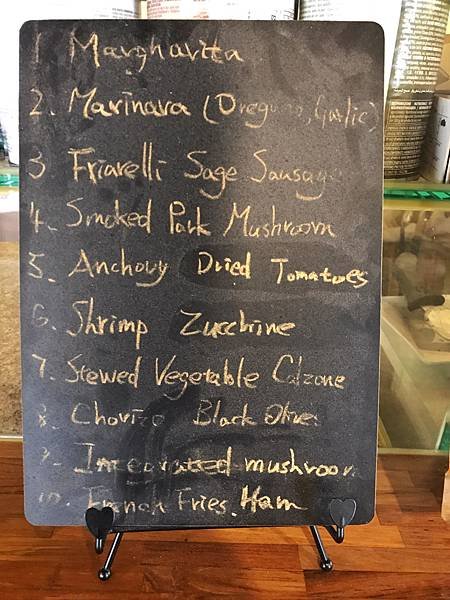 1 Margharita
2. Marinara (Oregano, Garlic)
3 Friarelli Sage Sausage
4. Smoked Pork Mushroom
5. Anchovy Dried Tomatoes
6. Shrimp Zucchine
7. Stewed Vegetable Calzone
8. Chorizo Black Olive
9. Integrated mushroom
10. French Fries. Ham